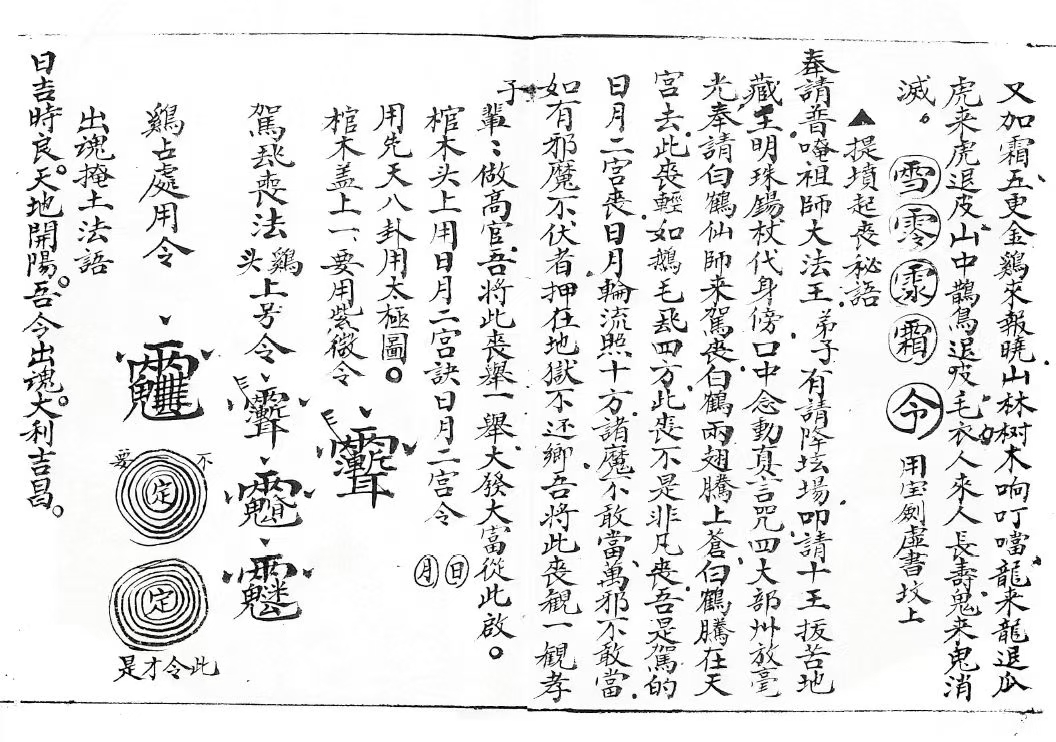 又加霜五更金鷄來報曉山林树木响叮噹龍来龍退瓜
虎来虎退皮山中鵲鳥退皮毛衣人來人長壽鬼来鬼消
滅。
雪零霖霜令 用宝劍虛書坟上
▲提墳起喪秘語
奉請普唵祖師大法王弟子有請降坛場叩請十王拔苦地
藏王明珠錫杖代身傍口中念動真言咒四大部州放毫
光奉請白鶴仙師来駕喪白鶴両翅騰上蒼白鶴騰在天
宮去此喪輕如鵝毛飛四方此喪不是非凡喪吾是駕的
日月二宮喪日月輪流照十方諸魔不敢當萬邪不敢當
如有邪魔不伏者押在地獄不还鄉吾將此喪観一観孝
子輩〻做高官吾將此喪舉一舉大發大富從此啟。
棺木头上用日月二宮訣日月二宮令 日月
用先天八卦用太極圖。
棺木盖上一、要用紫微令
駕飛喪法 鷄头上号令
鷄占處用令
不要
定
定
此令才是
出魂掩土法語
日吉時良。天地開陽。吾今出魂。大利吉昌。